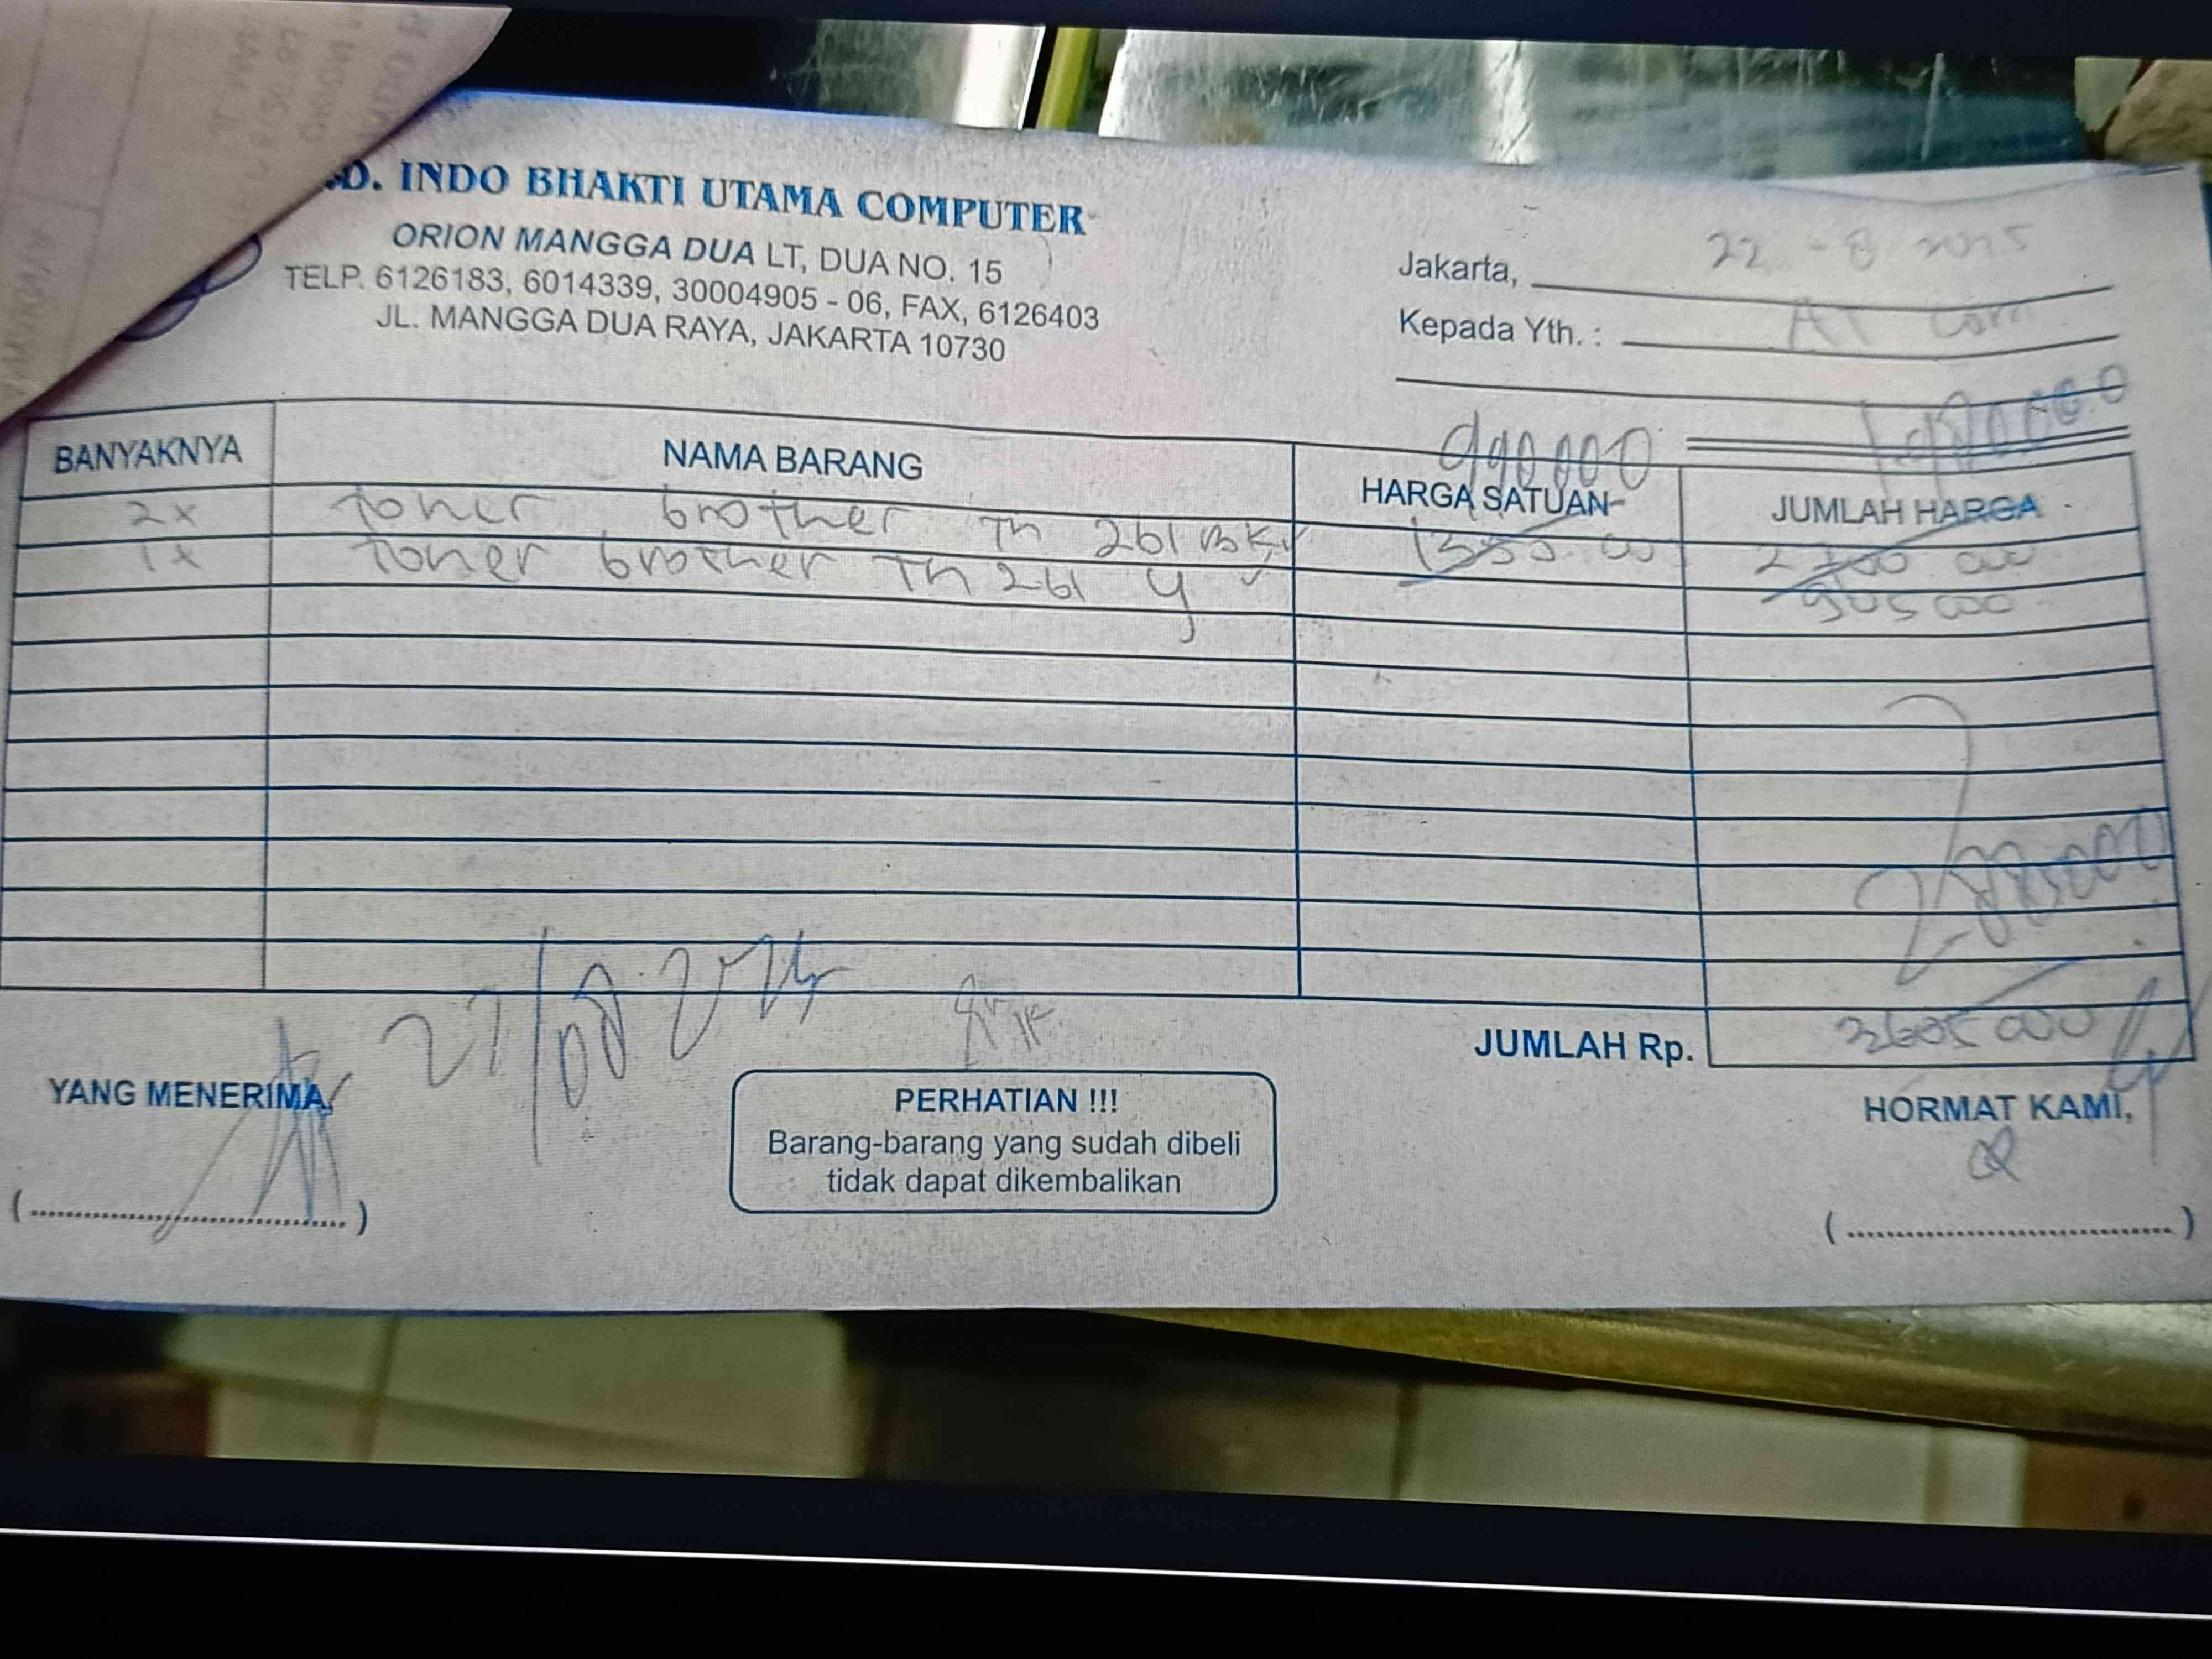 .D. INDO BHAKTI UTAMA COMPUTER
ORION MANGGA DUA LT, DUA NO. 15
TELP. 6126183, 6014339, 30004905 - 06, FAX, 6126403
JL. MANGGA DUA RAYA, JAKARTA 10730
Jakarta, 22 - 8 2025
Kepada Yth. : AT Com
990.000
BANYAKNYA NAMA BARANG HARGA SATUAN JUMLAH HARGA
2x toner brother Tn 261 BK 1350.000 2700 000
1x toner brother Tn 261 y 905 000
JUMLAH Rp. 3605 000
YANG MENERIMA,
PERHATIAN !!!
Barang-barang yang sudah dibeli
tidak dapat dikembalikan
HORMAT KAMI,
(..............................)
(..............................)